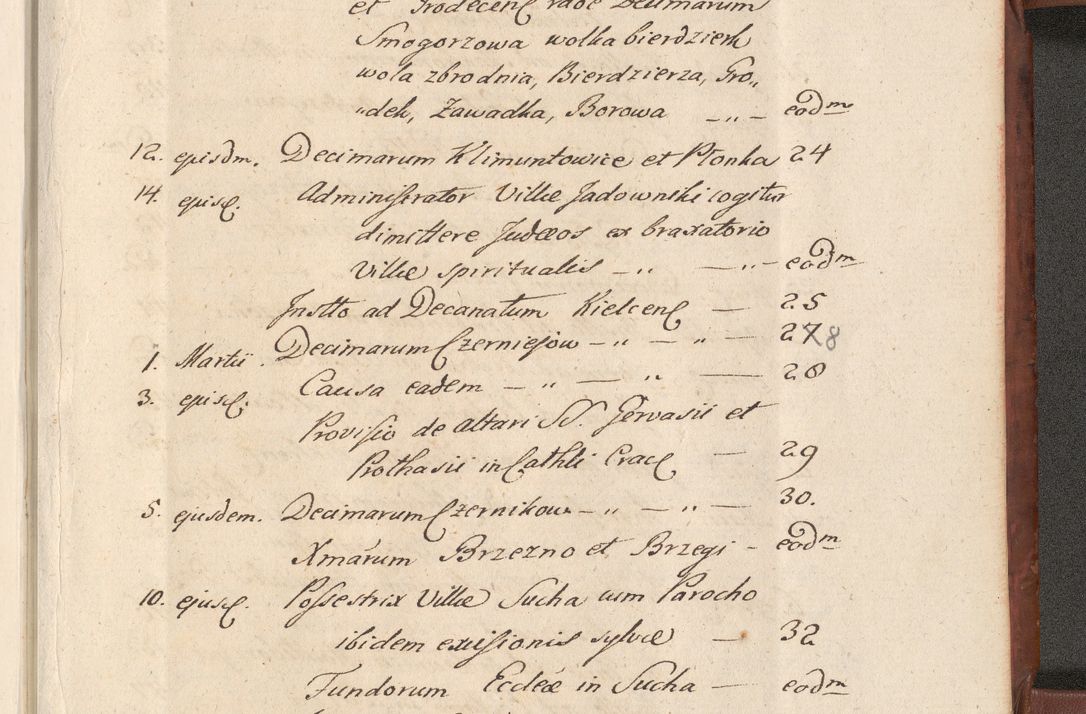 et Grodecens raõe Decimarum
Smogorzowa wolka bierdzień
wola zbrodnia, Bierdzierza, Gro„
„dek, Zawadka, Borowa — „ — eod̃m
12. episdm. Decimarum Klimuntowice et Płonka 24
14. episd. Administrator Villæ Jadownski cogitur
dimittere Judæos ex braxatorio
Villæ spiritualis — „ — „ — eod̃m
Instto ad Decanatum Kielcens — 25
1. Martii. Decimarum Czerniejow — „ — „ — 278
3. episd. Causa eadem — „ — „ — 28
Provisio de altari SS. Gervasii et
Prothasii in Cathli Crac — 29
5. ejusdem. Decimarum Czernikow — „ — „ — 30.
Xmárum Brzezno et Brzegi - eod̃m
10. ejusd. Possestrix Villæ Sucha cum Parocho
ibidem excisionis sylvæ — 32
Fundorum Eccleæ in Sucha — eod̃m